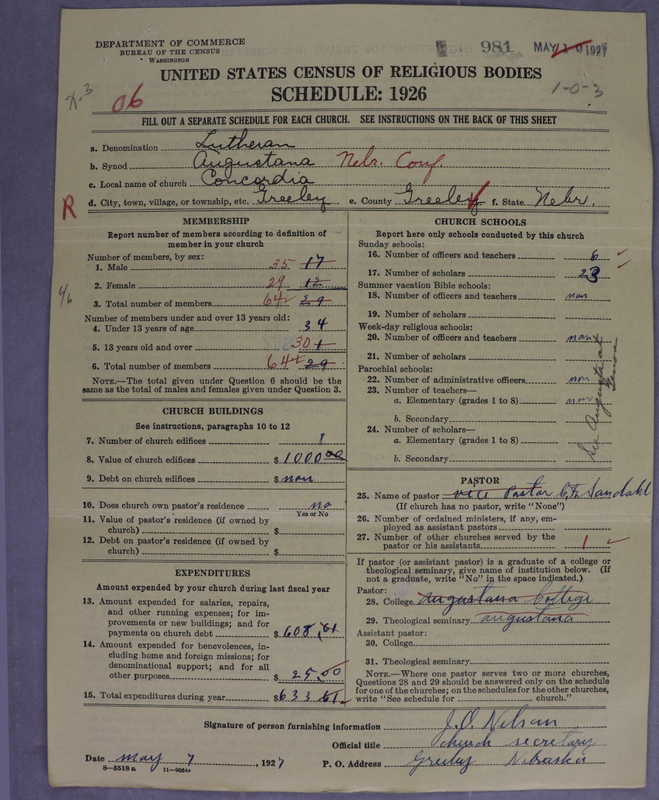 DEPARTMENT OF COMMERCE
BUREAU OF THE CENSUS
WASHINGTON
981 MAY 10 1927
UNITED STATES CENSUS OF RELIGIOUS BODIES
SCHEDULE: 1926
x.3 06 1-0-3
FILL OUT A SEPARATE SCHEDULE FOR EACH CHURCH. SEE INSTRUCTIONS ON THE BACK OF THIS SHEET
a. Denomination Lutheran
b. Synod Augustana Nebr. Conf
c. Local name of church Concordia
R d. City, town, village, or township, etc. Greeley e. County Greeley f. State Nebr.
MEMBERSHIP
Report number of members according to definition of
member in your church
Number of members, by sex:
1. Male 35 17
2. Female 29 12
3. Total number of members 64 29
Number of members under and over 13 years old:
4. Under 13 years of age 34
5. 13 years old and over 30
6. Total number of members 64 29
NOTE.—The total given under Question 6 should be
same as the total of males and females given under Question 3.
CHURCH BUILDINGS
See instructions, paragraphs 10 to 12
7. Number of church edifices 1
8. Value of church edifices $ 1000.00
9. Debt on church edifices $ non
10. Does church own pastor's residence no
Yes or No
11. Value of pastor's residence (if owned by
church) $
12. Debt on pastor's residence (if owned by
church) $
EXPENDITURES
Amount expended by your church during last fiscal year
13. Amount expended for salaries, repairs,
and other running expenses; for im-
provements or new buildings; and for
payments on church debt $ 608.61
14. Amount expended for benevolences,
including home and foreign missions; for
denominational support; and for all
other purposes $ 25.00
15. Total expenditures during year $ 633.61
CHURCH SCHOOLS
Report here only schools conducted by this church
Sunday schools:
16. Number of officers and teachers 6
17. Number of scholars 23
Summer vacation Bible schools:
18. Number of officers and teachers non
19. Number of scholars
Week-day religious schools:
20. Number of officers and teachers non
21. Number of scholars
Parochial schools:
22. Number of administrative officers non
23. Number of teachers—
a. Elementary (grades 1 to 8) non
b. Secondary
24. Number of scholars—
a. Elementary (grades 1 to 8)
b. Secondary
See Augustana
PASTOR
25. Name of pastor vice Pastor C. F. Sandahl
(If church has no pastor, write "None")
26. Number of ordained ministers, if any, em-
ployed as assistant pastors
27. Number of other churches served by the
pastor or his assistants 1
If pastor (or assistant pastor) is a graduate of a college or
theological seminary, give name of institution below. (If
not a graduate, write "No" in the space indicated.)
Pastor:
28. College Augustana College
29. Theological seminary augustana
Assistant pastor:
30. College
31. Theological seminary
NOTE.—Where one pastor serves two or more churches,
Questions 28 and 29 should be answered only on the schedule
for one of the churches; on the schedules for the other churches,
write "See schedule for church."
Signature of person furnishing information J.O. Nelson
Official title church secretary
Date may 7, 1927 P. O. Address Greeley Nebraska
8—5518a 11—9034a